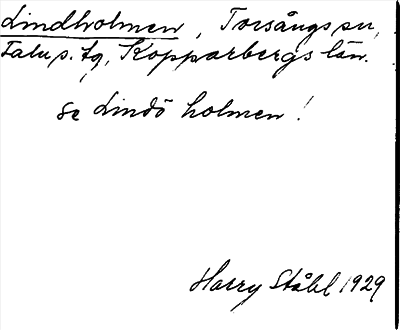 Lindholmen, Torsångs sn,
Falu s. tg, Kopparbergs län.
se Lindö holmen!
Harry Ståhl 1929